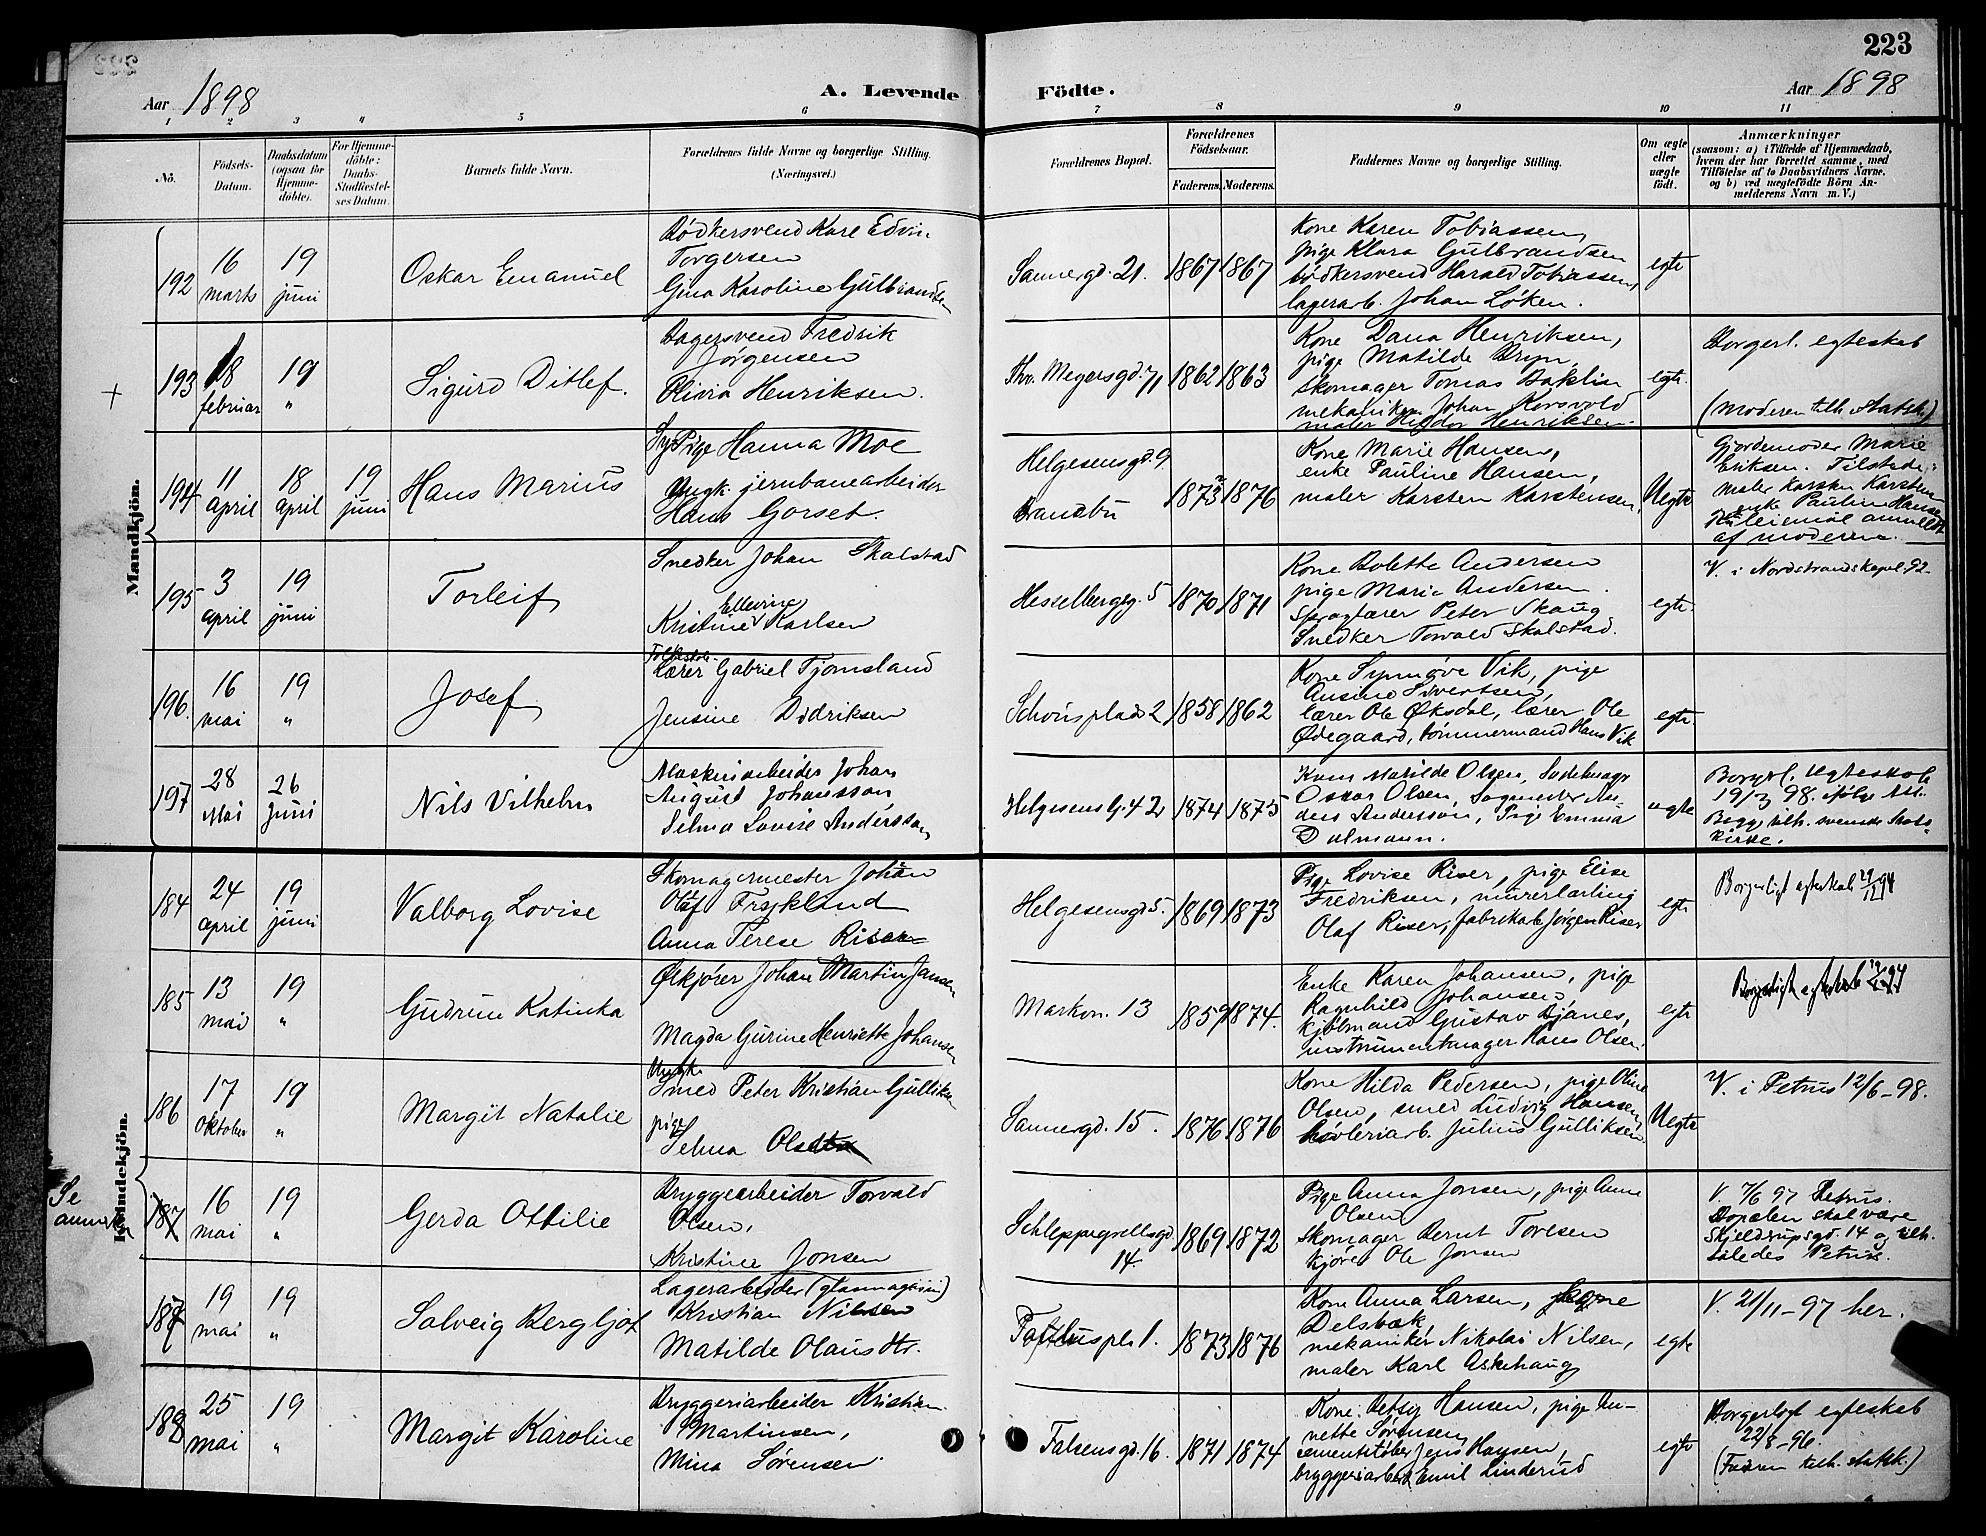 223
Aar 1898
A. Levende Födte.
Aar 1898
1 2 3 4 5 6 7 8 9 10 11
No.
Födsels-
Datum.
Daabsdatum
(ogsaa for
Hjemme-
döbte).
For Hjemme-
döbte:
Daabs-
Stadfæstel-
ses Datum.
Barnets fulde Navn.
Forældrenes fulde Navne og borgerlige Stilling.
(Næringsvei.)
Forældrenes Bopæl.
Forældrenes
Födselsaar.
Faderens. Moderens.
Faddernes Navne og borgerlige Stilling.
Om ægte
eller
uægte
födt.
Anmærkninger
(saasom: a) i Tilfælde af Hjemmedaab,
hvem der har forrettet samme, med
Tilföielse af to Daabsvidners Navne,
og b) ved uægtefödte Börn An-
melderens Navn m. V.)
Mandkjön.
192
16
marts
19
juni
Oskar Emanuel
Bödkersvend Kare Edvin
Torgersen
Gina Karoline Gulbrandsen
Sannergd. 21.
1867
1867
Kone Karen Tobiassen,
pige Klara Gulbrandsen
bödkersvend Harald Tobiassen,
lagerarb. Johan Löken.
egte
193
18
februar
19
"
Sigurd Ditlef.
Bagersvend Fredrik
Jörgensen
Olivia Henriksen.
Thv. Meyersgd. 71
1862
1863
Kone Dana Henriksen,
pige Matilde Bryn,
skomager Tomas Baklin
mekaniker Johan Korsvold
maler Hildor Henriksen.
egte.
Borgerl. egteskab
(Moderen tilh. Statsk.)
194
11
april
18
april
19
juni
Hans Marius
Sypige Hanna Moe
Ungk. jernbanearbeider
Hans Gorset.
Helgesensgd. 9.
Brandbu
1873
1876
Kone Marie Hansen,
enke Pauline Hansen,
maler Karsten Karstensen,
Uegte
Gjordemoder Marie
Eriksen. Tilstede:
maler Karsten Karstensen
enke Pauline Hansen
Leiemål anmeldt
af moderen.
195
3
april
19
juni
Torleif
Snedker Johan Skalstad
Ellevine
Kristine Karlsen
Hesselbergg. 5
1870
1871
Kone Bolette Andersen
pige Marie Andersen.
Sproglærer Peter Skaug
Snedker Torvald Skalstad.
egte
V. i Nordstrandskapel. 92-
196.
16
mai
19
"
Josef
Folkeskole-
Lærer Gabriel Tjomsland
Jensine Didriksen
Schousplads 2
1858
1862
Kone Synnöve Vik, pige
Ansine Sivertsen,
lærer Ole Öksdal, lærer Ole
Ödegaard, tömmermand Hans Vik
egte
197
28
Mai
26
Juni
Nils Vilhelm
Maskinarbeider Johan
August Johansson
Selma Lovise Andersson
Helgesens G. 42
1874
1875
Kone Matilde Olsen, Sadelmager
Oskar Olsen, Sagmester An-
ders Andersson, Pige Emma
Dalmann.
egte
Borgerl. Egteskab
19/3 98. ifölge Att.
Begge tilh. svenske Stats-
kirke.
Kvindekjön.
184
24
april
19
juni
Valborg Lovise
Skomagermester Johan
Olaf Frykland
Anna Terese Riser
Helgesensgd. 5.
1869
1873
Pige Lovise Riser, pige Elise
Fredriksen, murerlærling
Olaf Riser, fabrikarb. Jörgen Riser
egte
Borgerligt egteskab 94
185
13
mai
19
"
Gudrun Katinka
Ölkjörer Johan Martin Jansen
Magda Gurine Henriette Johansen
Markvn. 13
1859
1874.
Enke Karen Johansen, pige
Ragnhild Johansen,
kjöbmand Gustav Bjanes,
instrumentmager Hans Olsen.
egte
Borgerligt egteskab 94
186
17
oktober
19
"
Margit Natalie
Ungk.
Smed Peter Kristian Gulliksen
pige
Selma Olsen
Sannergd. 15.
1876
1876
Kone Hilda Pedersen, pige Oline
Olsen, smed Ludvig Hansen
hövleriarb. Julius Gulliksen
Uegte
V. i Petrus 12/6-98.
Se
anmerkn.
187
16
mai
19
"
Gerda Ottilie
Bryggearbeider Torvald
Olsen,
Kristine Jonsen
Schleppegrellsgd.
14.
1869
1872
Pige Anna Jonsen, pige Anne
Olsen
Skomager Bernt Toresen
kjörer Ole Jonsen
V. 7/6 97 Petrus.
Bopælen skal være
Skjeldrupsgd. 14 og tilh.
således Petrus.
187
19
mai
19
"
Solveig Bergljot
Lagerarbeider (glasmagasin)
Kristian Nilsen
Matilde Olausdtr.
Pauluspl. 1.
1873
1876
Kone Anna Larsen,
Delsbæk
mekaniker Nikolai Nilsen,
maler Karl Askehaug
egte
V. 21/11-97 her.
188
25
mai
19
"
Margit Karoline
Bryggeriarbeider Kristian
Martinsen,
Mina Sörensen.
Falsensgd. 16.
1871
1874
Kone Betsy Hansen, pige An-
nette Sörensen
sementstöber Jens Hansen,
bryggeriarbeid. Emil Linderud
egte
Borgerligt egteskab
22/8-96.
(Faderen tilh. statsk.)